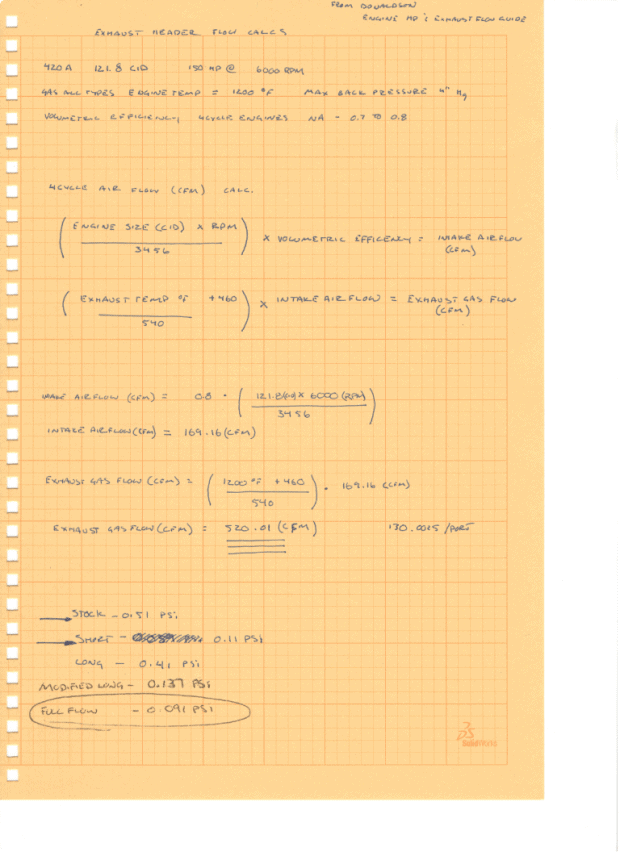 FROM DONALDSON
ENGINE HP & EXHAUST FLOW GUIDE
EXHAUST HEADER FLOW CALCS
420A 121.8 CID 150 HP @ 6000 RPM
GAS ALL TYPES ENGINE TEMP = 1200 °F MAX BACK PRESSURE 4" Hg
VOLUMETRIC EFFICIENCY 4CYCLE ENGINES NA - 0.7 TO 0.8
4CYCLE AIR FLOW (CFM) CALC.
( ENGINE SIZE (CID) X RPM / 3456 ) X VOLUMETRIC EFFICENCY = INTAKE AIRFLOW
(CFM)
( EXHAUST TEMP °F +460 / 540 ) X INTAKE AIRFLOW = EXHAUST GAS FLOW
(CFM)
INTAKE AIRFLOW (CFM) = 0.8 · ( 121.8 X 6000 (RPM) / 3456 )
INTAKE AIRFLOW (CFM) = 169.16 (CFM)
EXHAUST GAS FLOW (CFM) = ( 1200 °F +460 / 540 ) · 169.16 (CFM)
EXHAUST GAS FLOW (CFM) = 520.01 (CFM) 130.0025 /PORT
STOCK - 0.51 PSi
SHORT - 0.11 PSi
LONG - 0.41 PSi
MODIFIED LONG - 0.137 PSi
FULL FLOW - 0.091 PSi
DS
SolidWorks